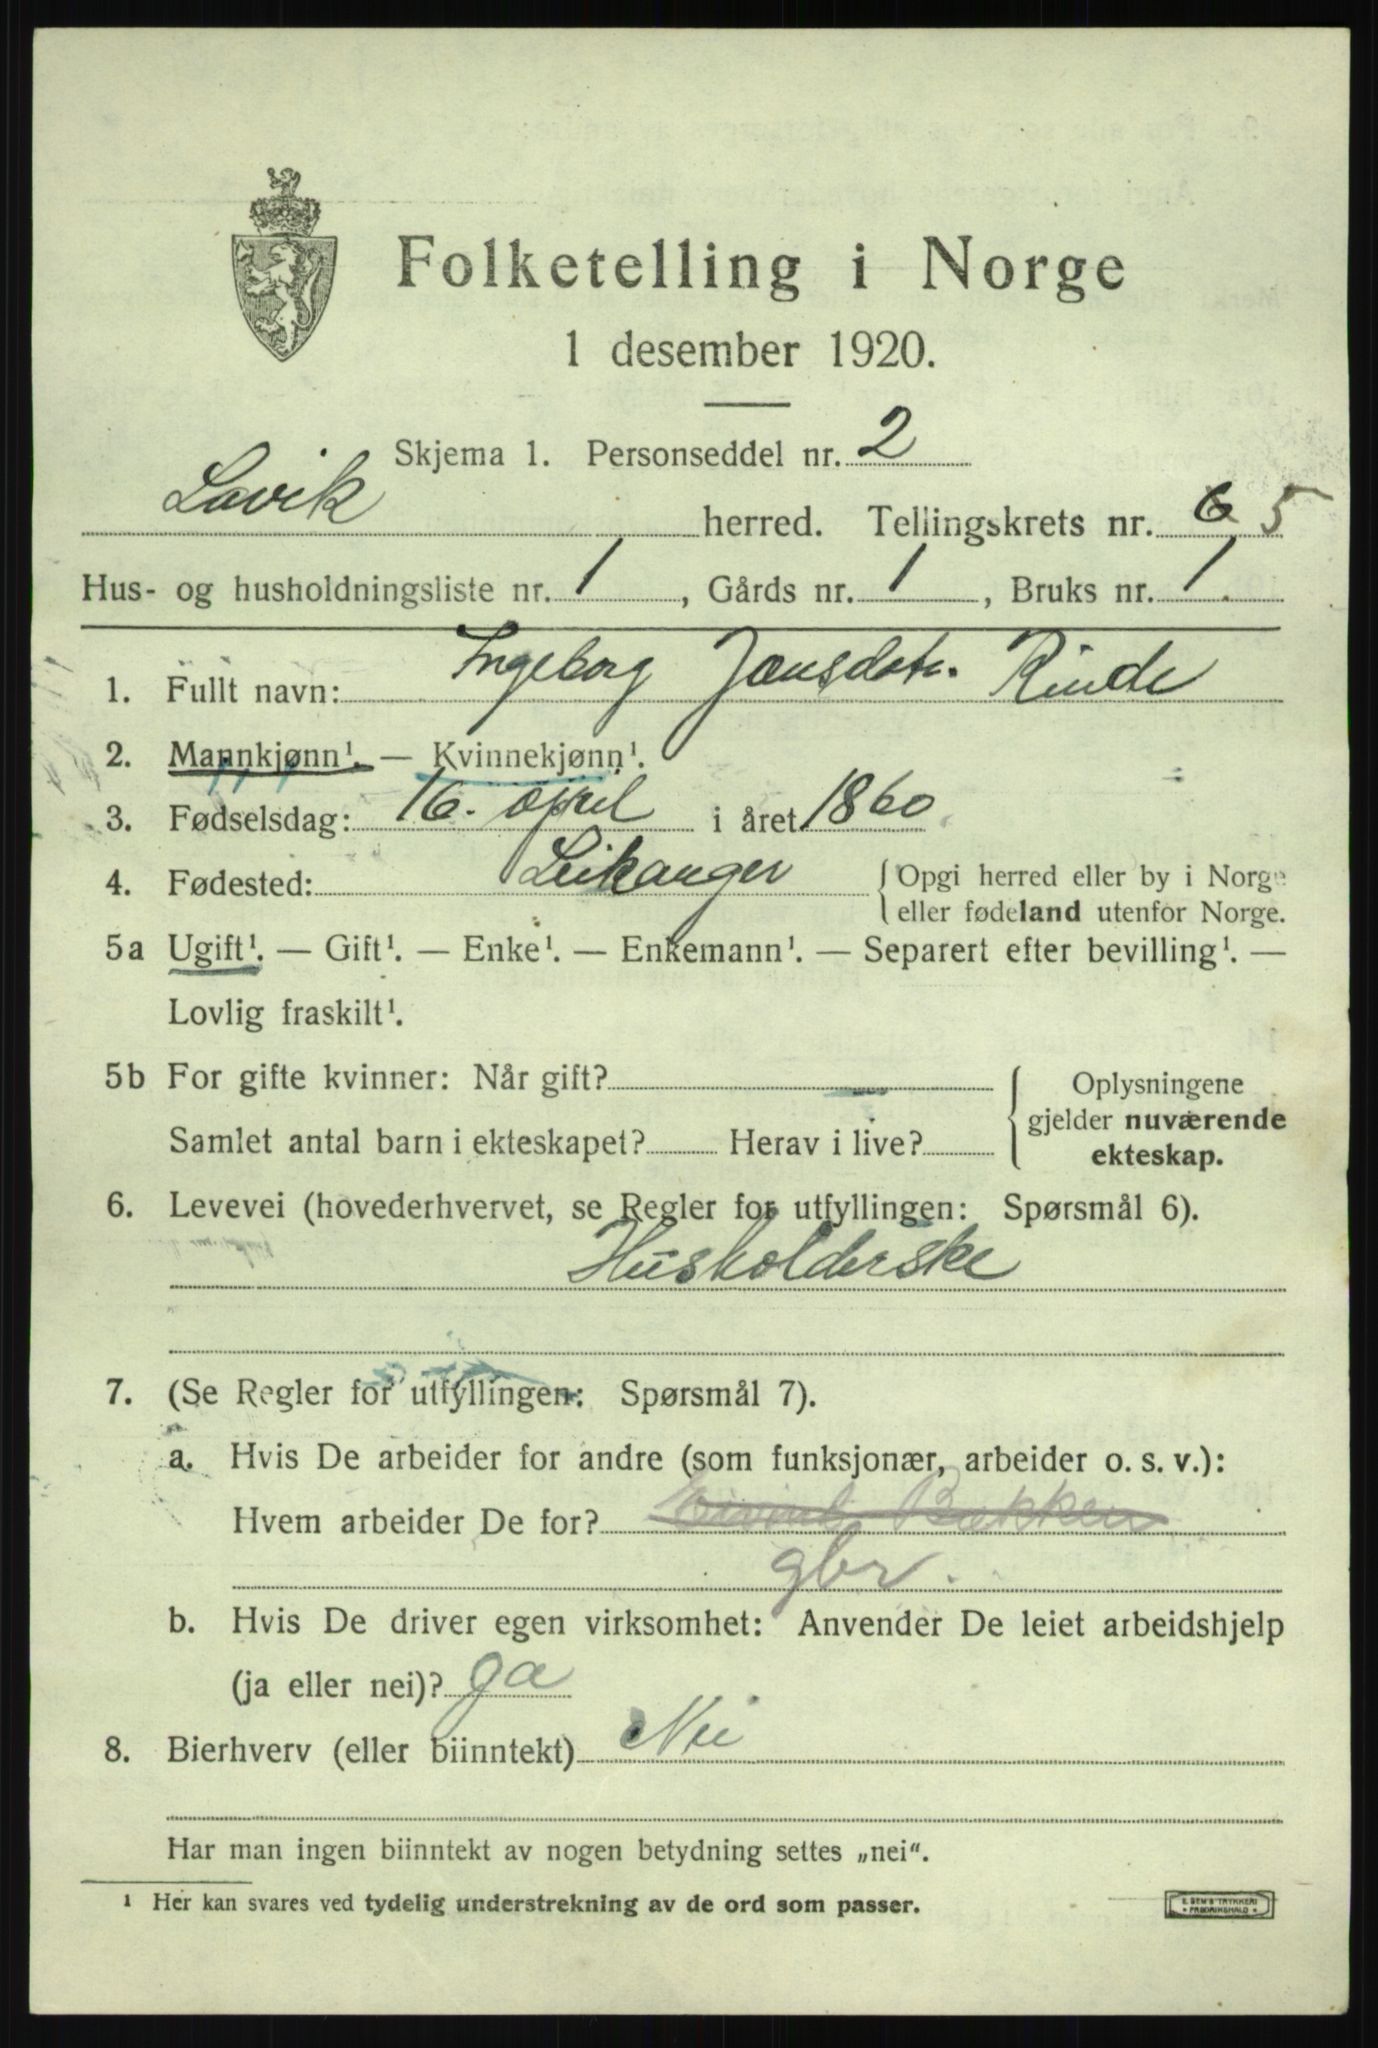 Folketelling i Norge
1 desember 1920.
Skjema 1. Personseddel nr. 2
Lavik herred. Tellingskrets nr. 6 5
Hus- og husholdningsliste nr. 1, Gårds nr. 1, Bruks nr. 1.
1. Fullt navn: Ingeborg Jensdatr. Rinde
2. Mannkjønn¹. — Kvinnekjønn¹.
3. Fødselsdag: 16. april i året 1860
4. Fødested: Leikanger {Opgi herred eller by i Norge
eller fødeland utenfor Norge.
5a Ugift¹. — Gift¹. — Enke¹. — Enkemann¹. — Separert efter bevilling¹. —
Lovlig fraskilt¹.
5b For gifte kvinner: Når gift? — {Oplysningene
gjelder nuværende
Samlet antal barn i ekteskapet? Herav i live?
ekteskap.
6. Levevei (hovederhvervet, se Regler for utfyllingen: Spørsmål 6).
Husholderske
7. (Se Regler for utfyllingen: Spørsmål 7).
a. Hvis De arbeider for andre (som funksjonær, arbeider o. s. v.):
Hvem arbeider De for? Eivind Bækken
gbr.
b. Hvis De driver egen virksomhet: Anvender De leiet arbeidshjelp
(ja eller nei)? Ja
8. Bierhverv (eller biinntekt) Nei
Har man ingen biinntekt av nogen betydning settes „nei“.
¹ Her kan svares ved tydelig understrekning av de ord som passer.
E. SEM'S TRYKKERI
* FREDRIKSHALD *